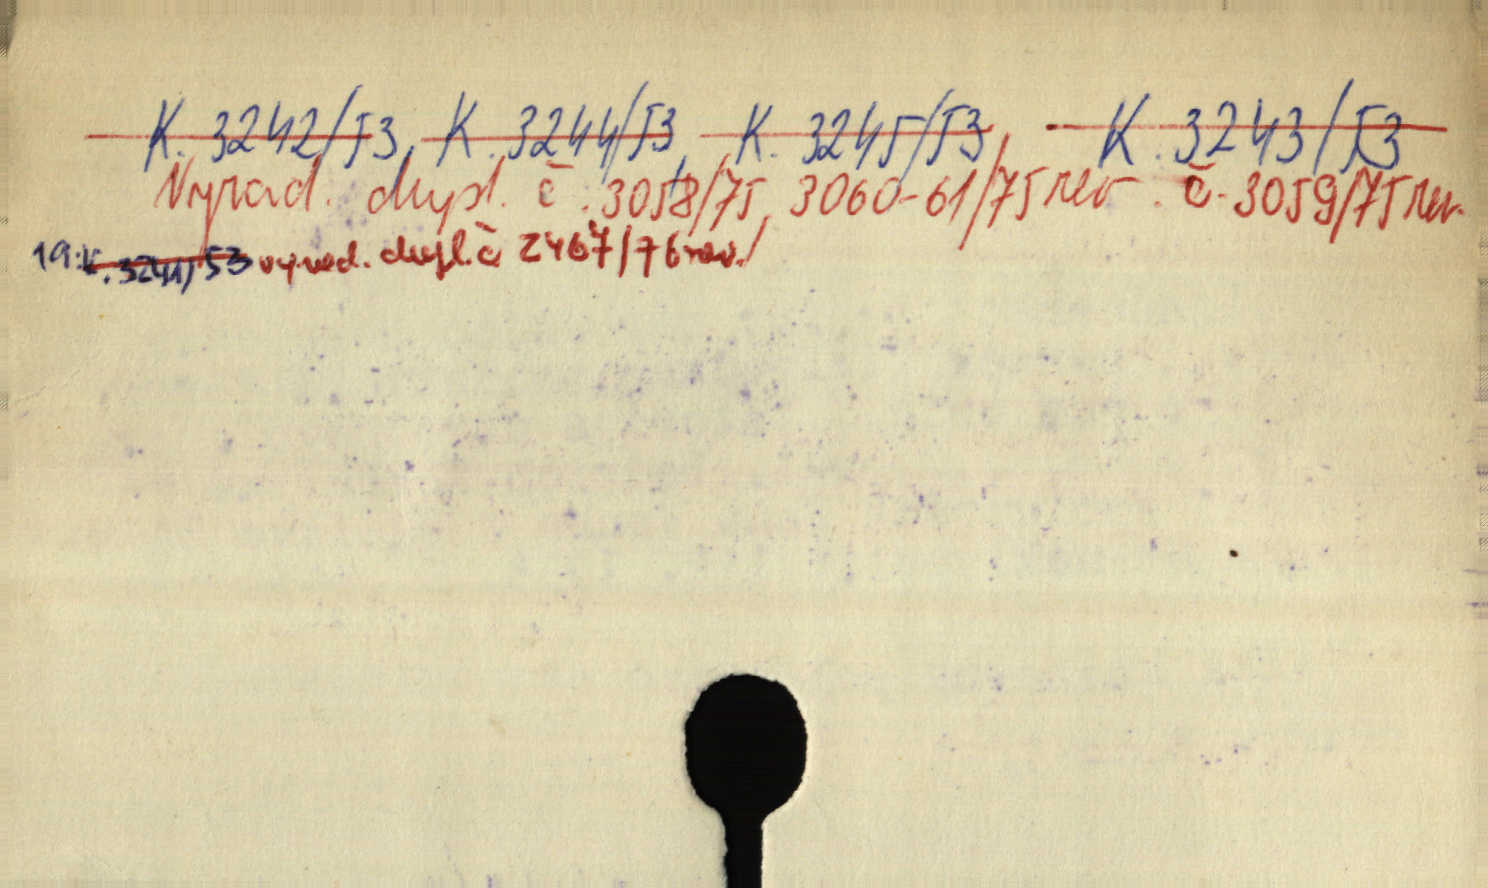 K. 3242/53, K. 3244/53, K. 3245/53, K. 3243/53
Vyřad. dupl. č. 3058/75, 3060-61/75 rev. č. 3059/75 rev.
19: K. 3241/53 vyřad. dupl. č. 2467/76 rev./